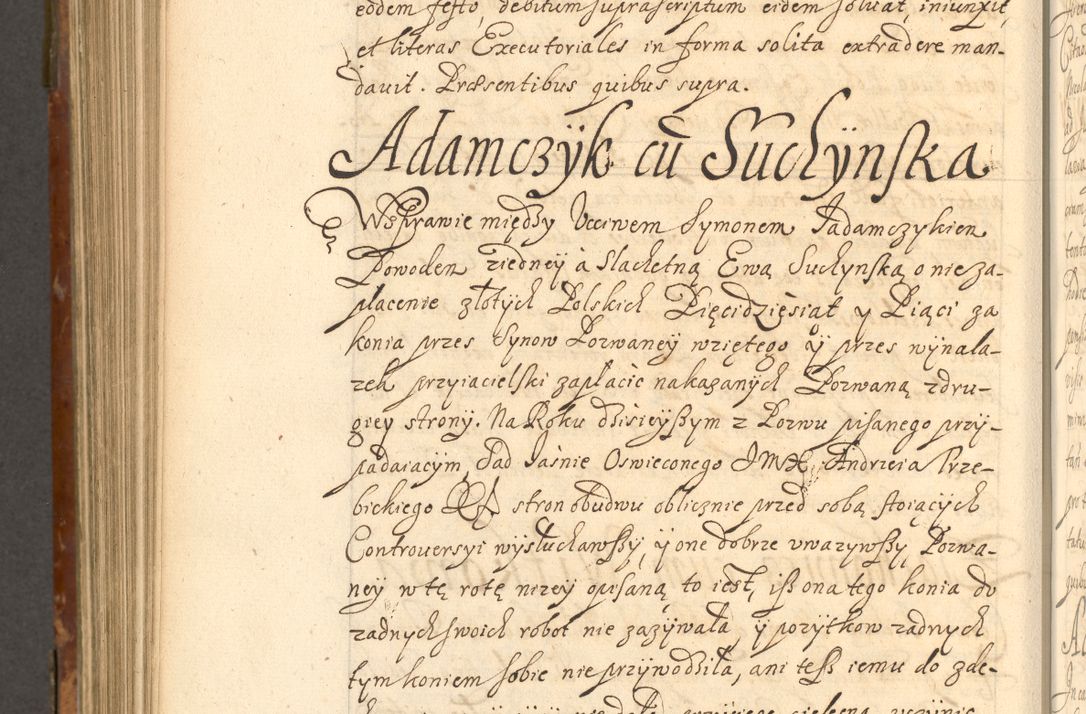 eodem festo, debitum suprascriptum eidem soluat, iniunxit,
et literas Executoriales in forma solita extradere man-
dauit. Præsentibus quibus supra.
Adamczÿk cū Suchÿnska
W sprawie między Ucciwem Symonem Jadamczykien
Powoden z iedneÿ a Slachetną Ewą Suchynską o nieza-
płacenie złotÿch Polskich Pięcidzięsiąt y Piąci za
konia przes Synow Pozwaneÿ wziętego ÿ przes wÿnala-
zek przyiacielski zapłacic nakazanÿch Pozwaną z dru-
giey stronÿ. Na Roku dzisieÿszym z Pozwu pisanego przÿ-
padaiacÿm, Sad Jaśnie Oswieconego JMX Andrzeia Trze-
bickiego stron obudwu oblicznie przed sobą stoiącÿch
Controuersyi wÿsłuchawszÿ, ÿ one dobrze vwazywszy Pozwa-
neÿ w tę rotę nizeÿ opisaną, to iest, isz ona tego konia do
zadnÿch swoich robot nie zazÿwała, ÿ pozytkow zadnÿch
tym koniem sobie nie przÿwodziła, ani tesz iemu do zde-